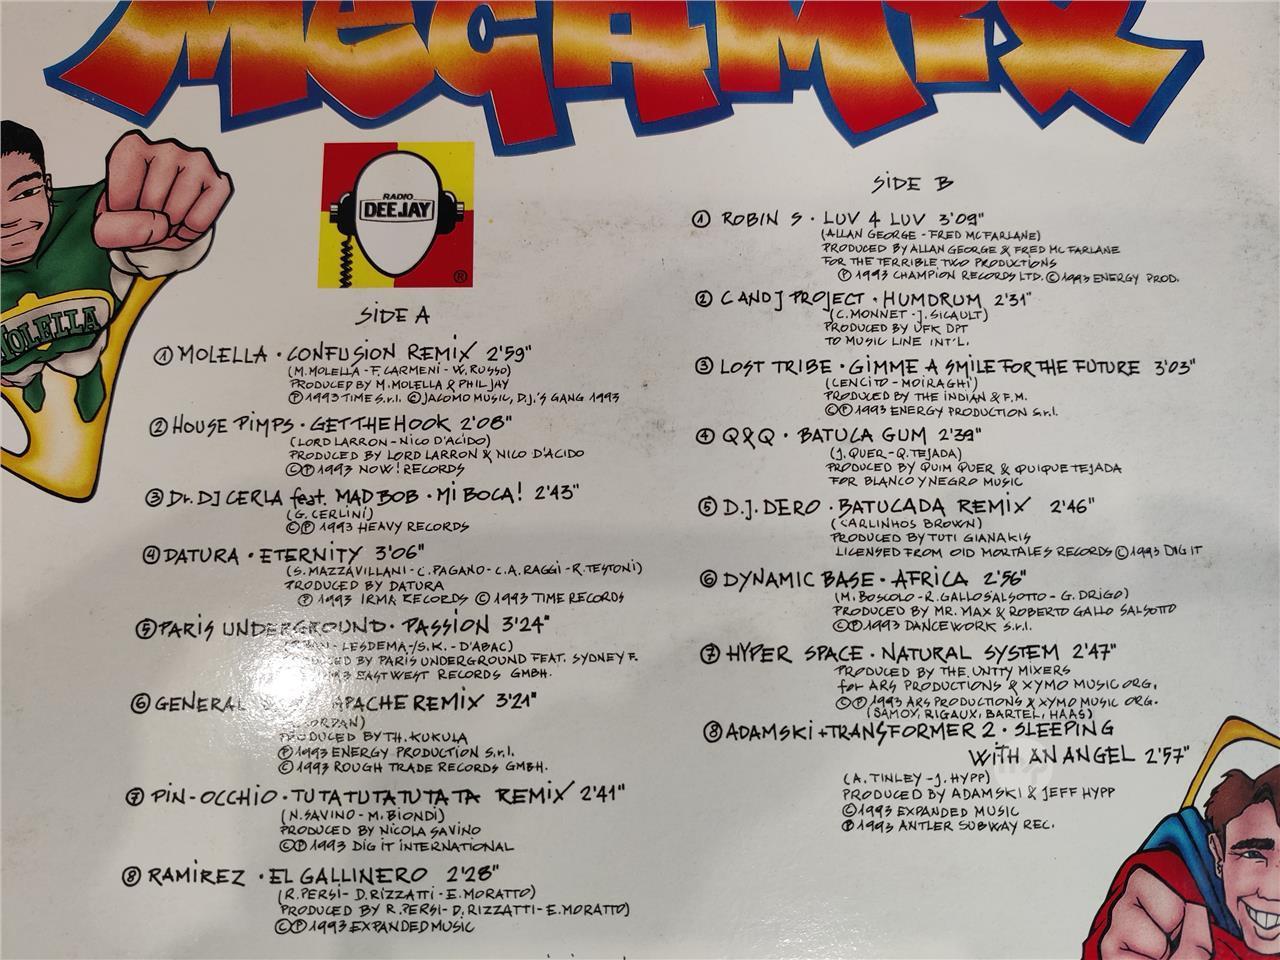 MEGAMIX
MOLELLA
RADIO
DEEJAY
®
SIDE A
① MOLELLA · CONFUSION REMIX 2'59"
(M. MOLELLA - F. CARMENI - W. RUSSO)
PRODUCED BY M. MOLELLA & PHIL JAY
Ⓟ 1993 TIME S.r.l. © JACOMO MUSIC, D.J.'S GANG 1993
② HOUSE PIMPS · GET THE HOOK 2'08"
(LORD LARRON - NICO D'ACIDO)
PRODUCED BY LORD LARRON & NICO D'ACIDO
©Ⓟ 1993 NOW! RECORDS
③ Dr. DJ CERLA feat. MAD BOB · MI BOCA! 2'43"
(G. CERLINI)
©Ⓟ 1993 HEAVY RECORDS
④ DATURA · ETERNITY 3'06"
(S. MAZZAVILLANI - C. PAGANO - C.A. RAGGI - R. TESTONI)
PRODUCED BY DATURA
Ⓟ 1993 IRMA RECORDS © 1993 TIME RECORDS
⑤ PARIS UNDERGROUND · PASSION 3'24"
- LESDEMA - /S.K. - D'ABAC)
BY PARIS UNDERGROUND FEAT. SYDNEY F.
EAST WEST RECORDS GMBH.
⑥ GENERAL APACHE REMIX 3'21"
PRODUCED BY TH. KUKULA
Ⓟ 1993 ENERGY PRODUCTION S.r.l.
© 1993 ROUGH TRADE RECORDS GMBH.
⑦ PIN-OCCHIO · TUTATUTATUTATA REMIX 2'41"
(N. SAVINO - M. BIONDI)
PRODUCED BY NICOLA SAVINO
©Ⓟ 1993 DIG IT INTERNATIONAL
⑧ RAMIREZ · EL GALLINERO 2'28"
(R. PERSI - D. RIZZATTI - E. MORATTO)
PRODUCED BY R. PERSI - D. RIZZATTI - E. MORATTO)
©Ⓟ 1993 EXPANDED MUSIC
SIDE B
① ROBIN S · LUV 4 LUV 3'09"
(ALLAN GEORGE - FRED MC FARLANE)
PRODUCED BY ALLAN GEORGE & FRED MC FARLANE
FOR THE TERRIBLE TWO PRODUCTIONS
Ⓟ 1993 CHAMPION RECORDS LTD. © 1993 ENERGY PROD.
② C AND J PROJECT · HUMDRUM 2'31"
(C. MONNET - J. SICAULT)
PRODUCED BY UFK DPT
TO MUSIC LINE INT'L.
③ LOST TRIBE · GIMME A SMILE FOR THE FUTURE 3'03"
(CENCITO - MOIRAGHI)
PRODUCED BY THE INDIAN & F.M.
©Ⓟ 1993 ENERGY PRODUCTION S.r.l.
④ Q & Q · BATUCA GUM 2'39"
(J. QUER - Q. TEJADA)
PRODUCED BY QUIM QUER & QUIQUE TEJADA
FOR BLANCO Y NEGRO MUSIC
⑤ D.J. DERO · BATUCADA REMIX 2'46"
(CARLINHOS BROWN)
PRODUCED BY TUTI GIANAKIS
LICENSED FROM OID MORTALES RECORDS © 1993 DIG IT
⑥ DYNAMIC BASE · AFRICA 2'56"
(M. BOSCOLO - R. GALLO SALSOTTO - G. DRIGO)
PRODUCED BY MR. MAX & ROBERTO GALLO SALSOTTO
©Ⓟ 1993 DANCEWORK S.r.l.
⑦ HYPER SPACE · NATURAL SYSTEM 2'47"
PRODUCED BY THE UNITY MIXERS
for ARS PRODUCTIONS & XYMO MUSIC ORG.
©Ⓟ 1993 ARS PRODUCTIONS & XYMO MUSIC ORG.
(SAMOY, RIGAUX, BARTEL, HAAS)
⑧ ADAMSKI + TRANSFORMER 2 · SLEEPING
WITH AN ANGEL 2'57"
(A. TINLEY - J. HYPP)
PRODUCED BY ADAMSKI & JEFF HYPP
© 1993 EXPANDED MUSIC
Ⓟ 1993 ANTLER SUBWAY REC.